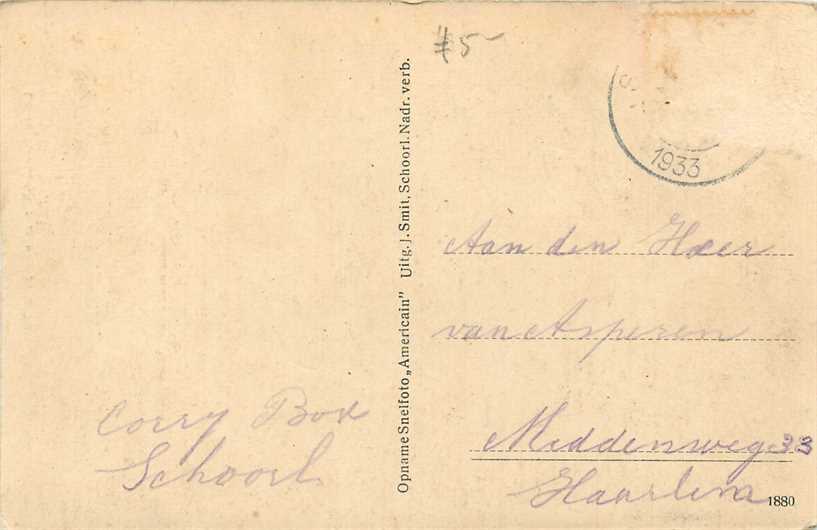 #5-
1933
Opname Snelfoto „Americain” Uitg. J. Smit, Schoorl. Nadr. verb.
Aan den Heer
van Asperen
Middenweg 33
Haarlem
Corry Box
Schoorl
1880